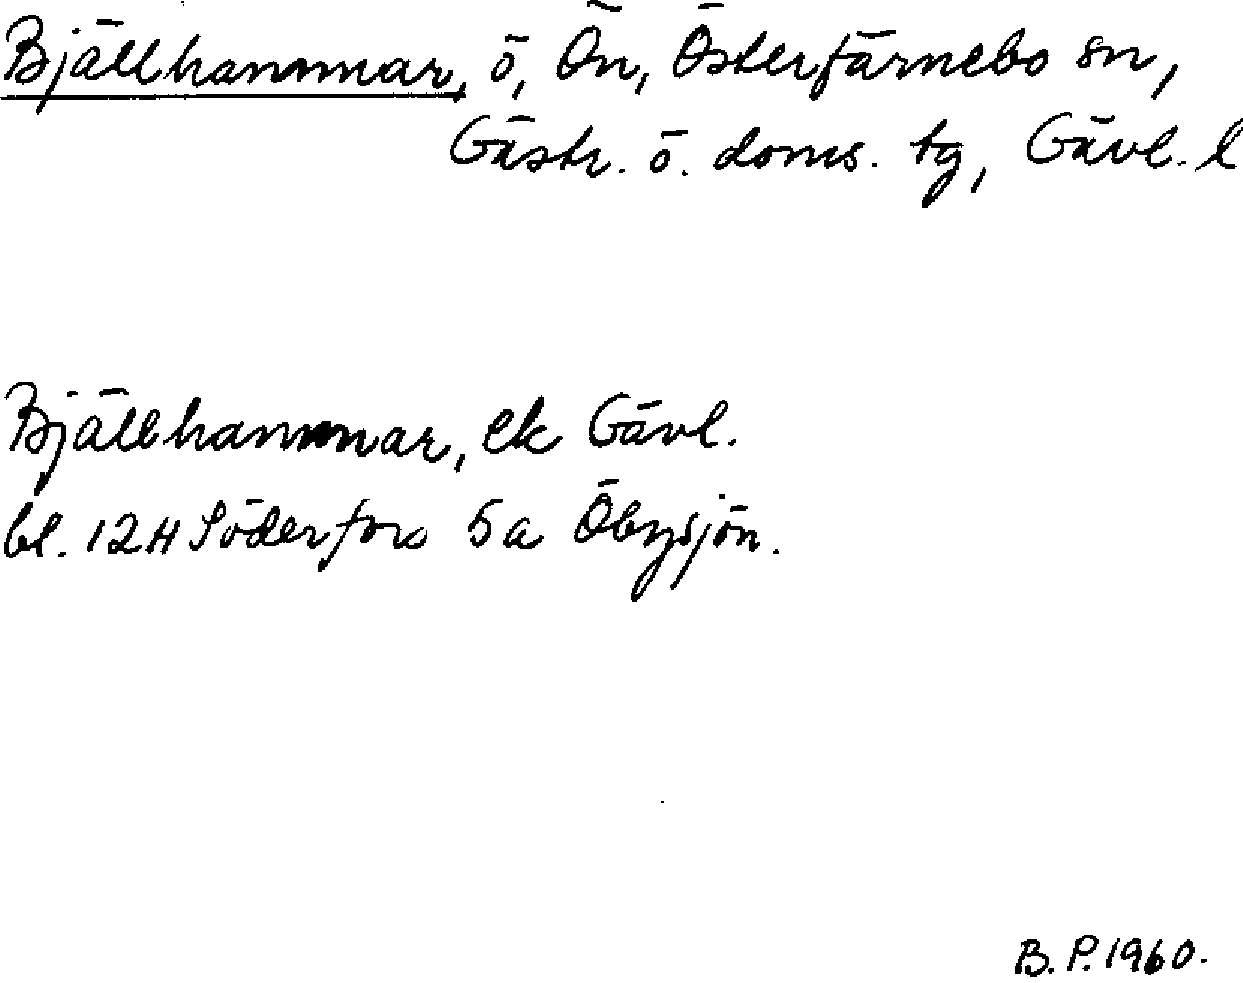 Bjällhammar, ö, Ön, Österfärnebo sn,
Gästr. ö. doms. tg, Gävl. l
Bjällhammar, ek Gävl.
bl. 12H Söderfors 5a Öbysjön.
B. P. 1960.